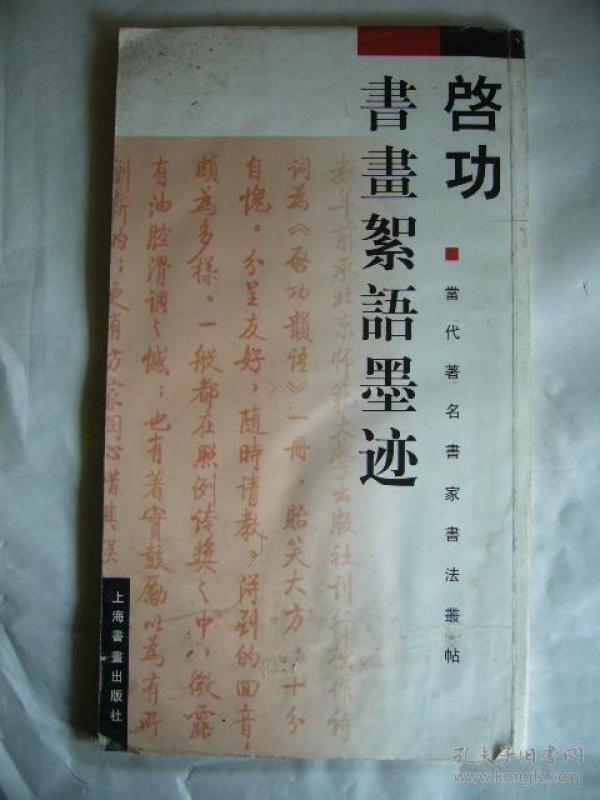 啓功
書畫絮語墨迹
當代著名書家書法叢帖
數年前承北京师範大學出版社刊行拙作诗
词为《啓功韻语》一册，贻笑大方；十分
自愧。分呈友好，随時请教。得到的回音，
颇为多樣。一般都在照例诗奖之中，微露
有油腔滑调之憾；也有著實鼓励以为有所
创新的；更有方家因心惜其
上海書畫出版社
孔夫子旧書网
www.kongfz.com